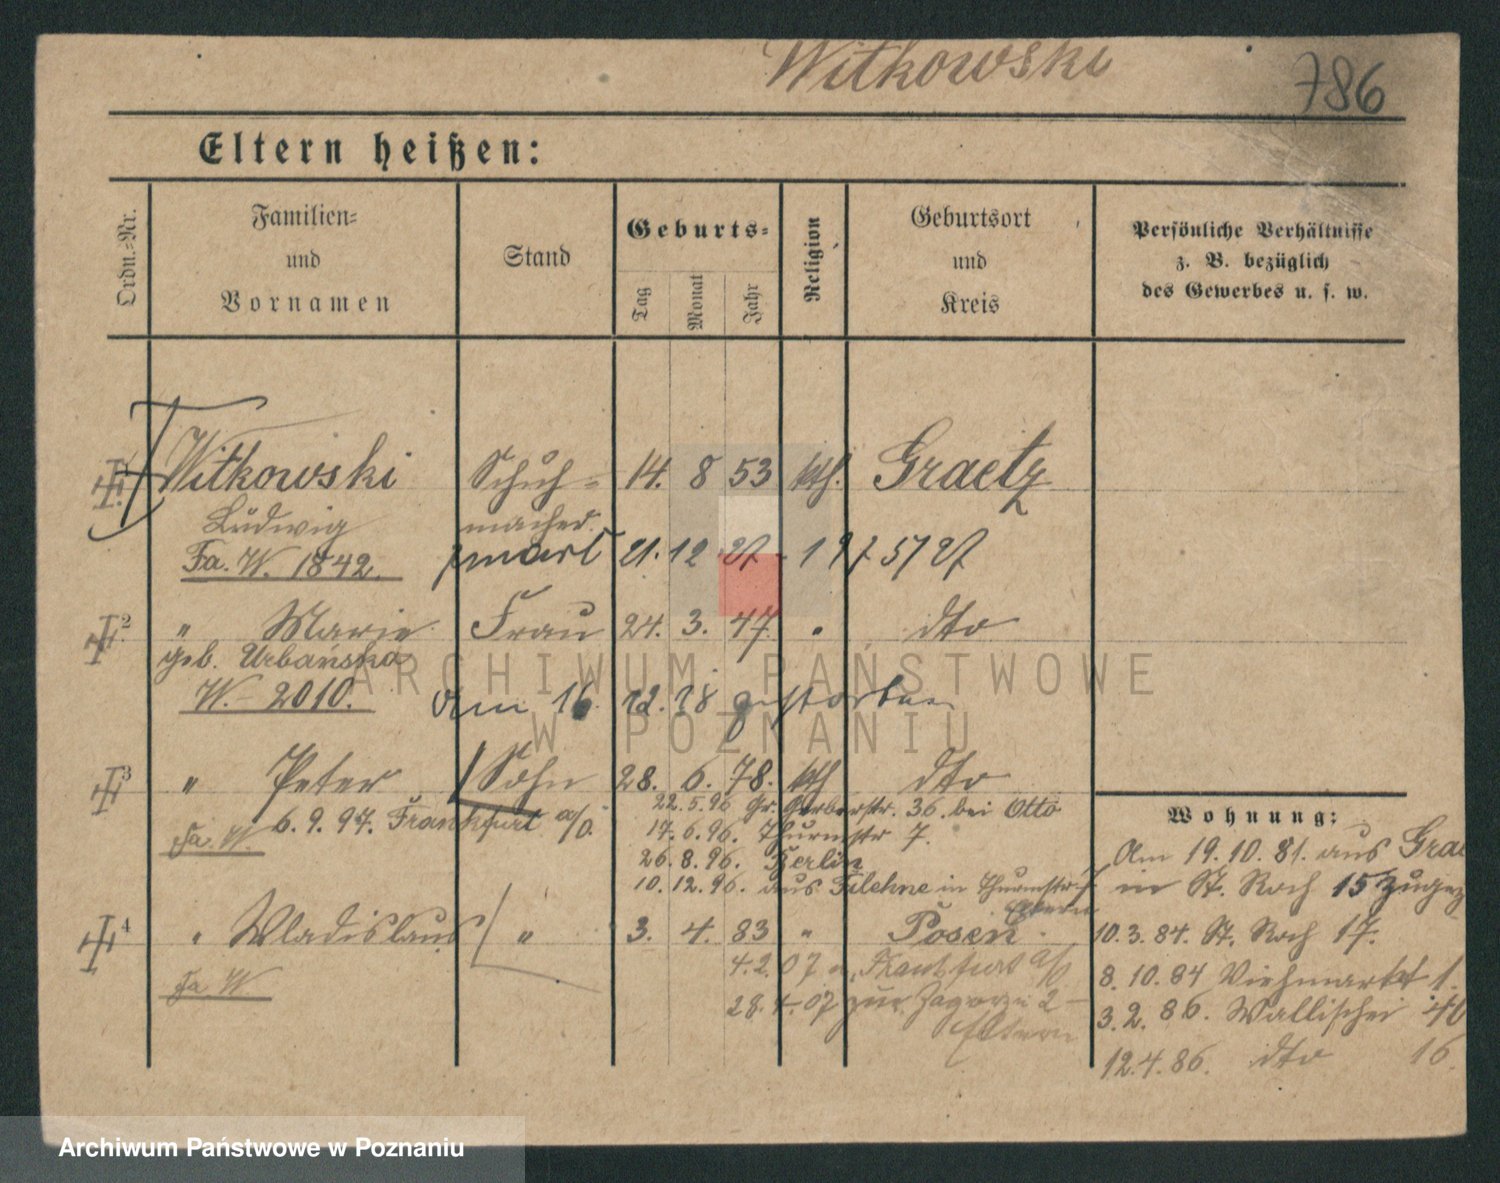 Witkowski
786
Eltern heißen:
Ordn.-Nr.
Familien-
und
Vornamen
Stand
Geburts-
Tag
Monat
Jahr
Religion
Geburtsort
und
Kreis
Persönliche Verhältnisse
z. B. bezüglich
des Gewerbes u. s. w.
Witkowski Schuh- 14. 8 53 kth. Graetz
Ludwig macher
Fa. W. 1842. 21. 12 27
2 " Marie Frau 24. 3. 47. " dto
geb. Urbańska
W. 2010. am 16. 12. 18 gestorben
3 " Peter Sohn 28. 6. 78. kth dto
22.5.96 Gr. Gerberstr. 36. bei Otto
6.9.97. Frankfurt a/O.
Fa. W.
17.6.96. Thurmstr 7.
26.8.96. Berlin
10.12.96. aus Filehne in Thurmstr. 7
Eltern
4 " Wladislaus " 3. 4. 83 " Posen
Fa. W
4.2.07 n. Frankfurt a/O
28.4.07 zur Zagorze 2
Eltern
Wohnung:
Am 19.10.81. aus Grae
in St. Roch 15 zugez
10.3.84. St. Roch 17.
8.10.84 Viehmarkt 1.
3.2.86. Wallischei
12.4.86. dto 16
ARCHIWUM PAŃSTWOWE
W POZNANIU
Archiwum Państwowe w Poznaniu